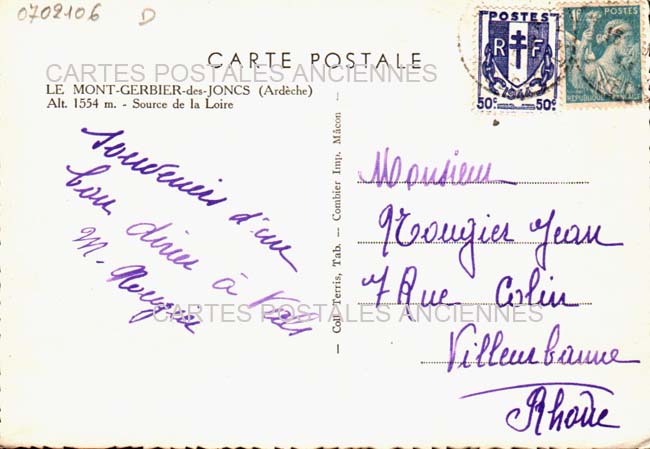 0702106 D
CARTE POSTALE
CARTES POSTALES ANCIENNES
LE MONT-GERBIER-des-JONCS (Ardèche)
Alt. 1554 m. - Source de la Loire
Souvenirs d'un
bon dîner à Vals
M. Rougier
— Coll. Terris, Tab. — Combier Imp. Mâcon —
POSTES
R F
1944
50c 50c
1F POSTES
Monsieur
Rougier Jean
7 Rue Colin
Villeurbanne
Rhône
CARTES POSTALES ANCIENNES